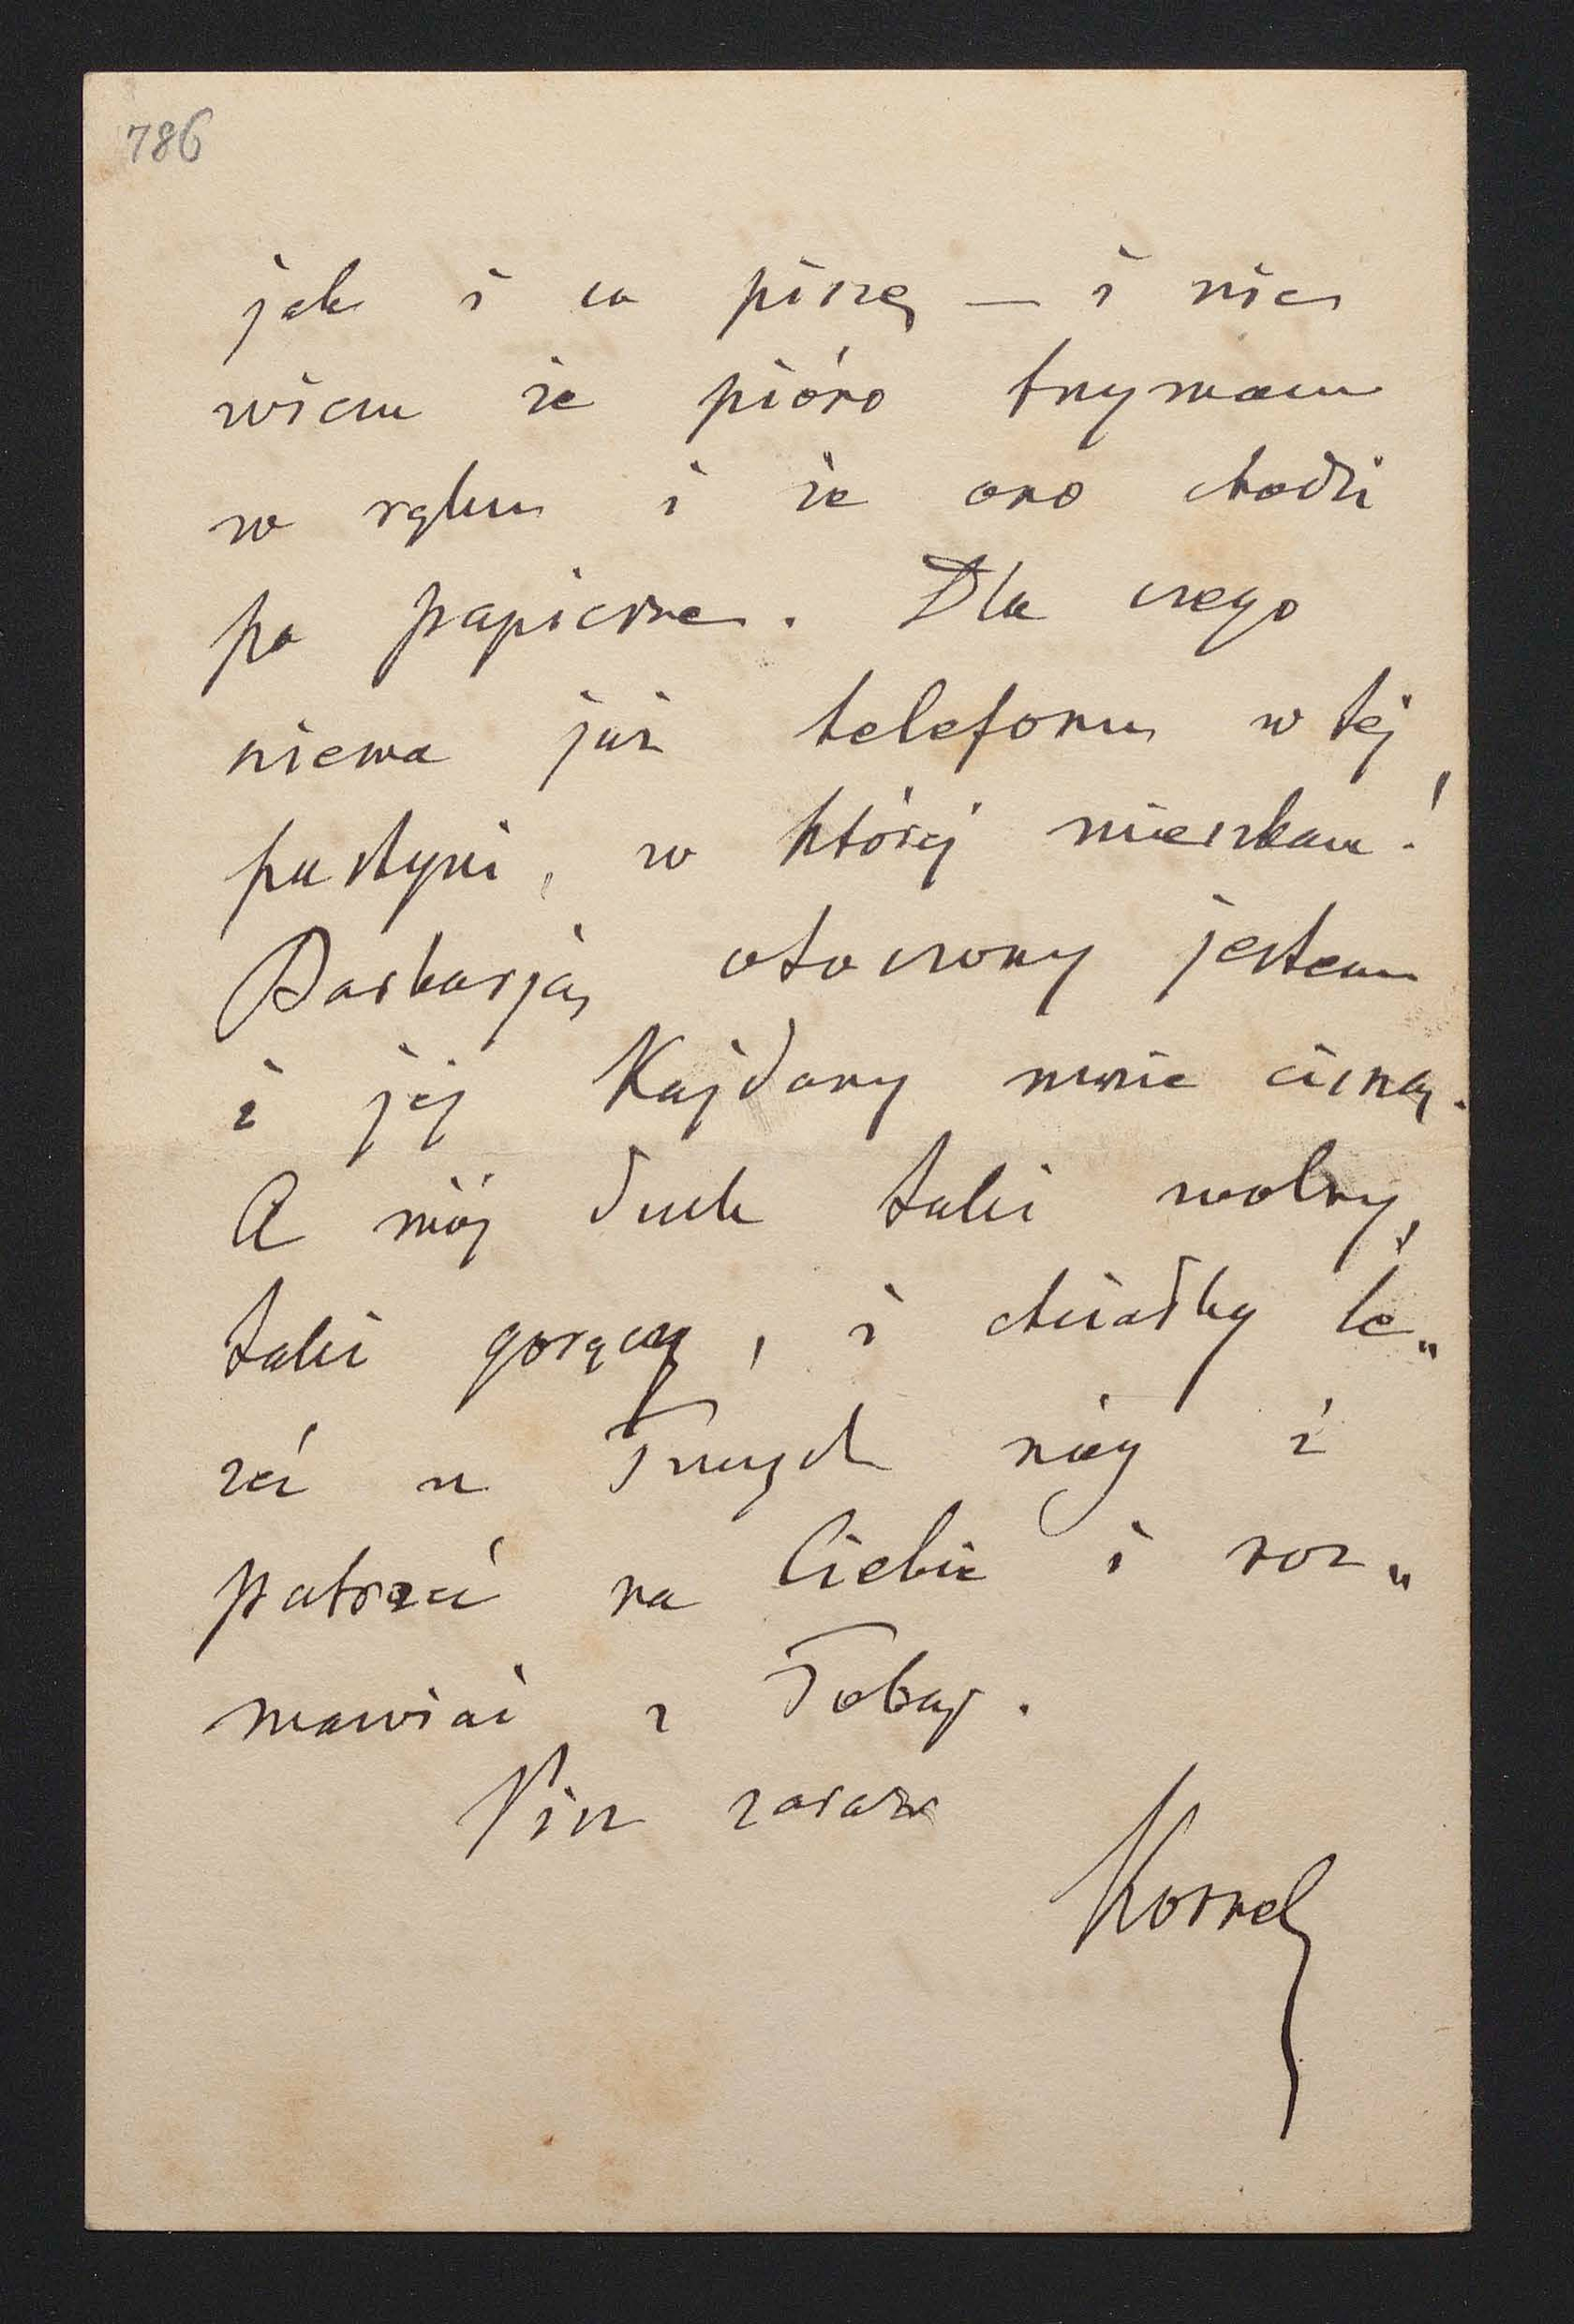 786
jak i co piszę — i nie
wiem że pióro trzymam
w ręku i że ono chodzi
po papierze. Dla czego
niema już telefonu w tej
pustyni, w której mieszkam!
Barbarją otoczony jestem
i jej Kajdany mnie cisną.
A mój duch taki wolny,
taki gorący, i chciałby le„
żeć u Twych nóg i
patrzeć na Ciebie i roz„
mawiać z Tobą.
Pisz zaraz
Kornel